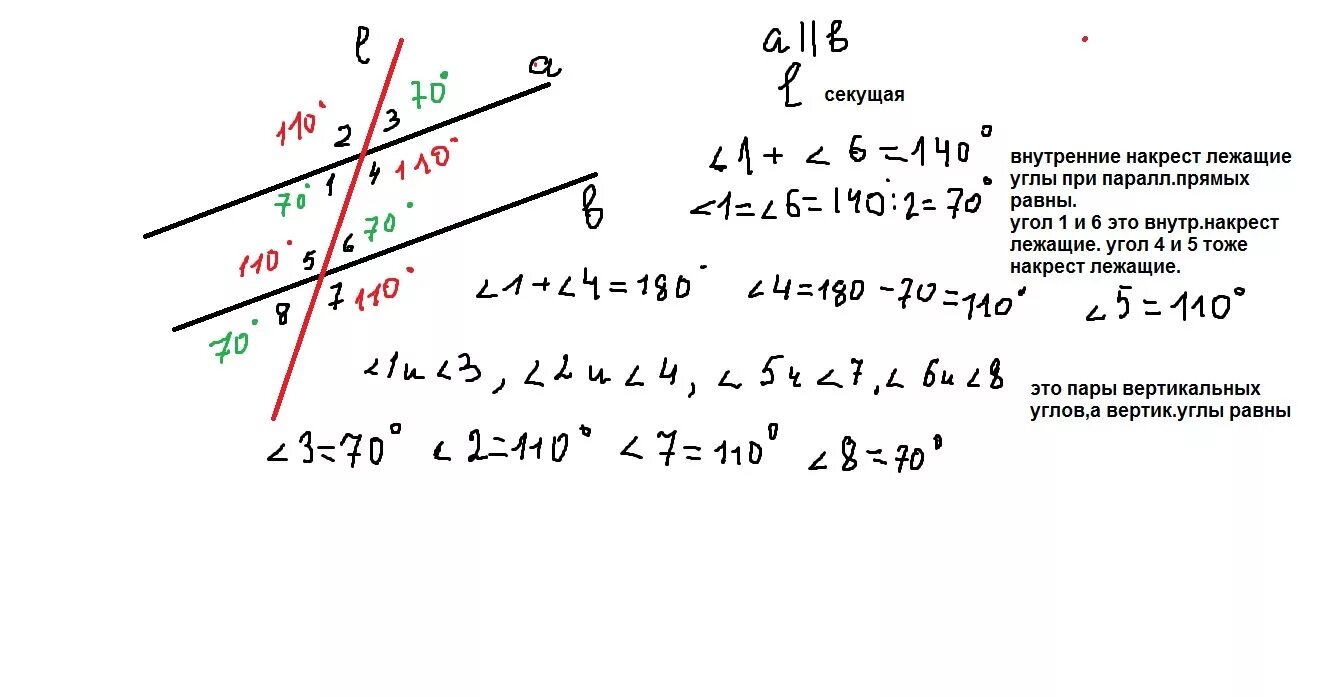 ℓ
a
110° 2 3 70°
70° 1 4 110°
в
110° 5 6 70°
70° 8 7 110°
a||в
ℓ секущая
∠1 + ∠6 = 140°
∠1 = ∠6 = 140 : 2 = 70°
внутренние накрест лежащие
углы при паралл.прямых
равны.
угол 1 и 6 это внутр.накрест
лежащие. угол 4 и 5 тоже
накрест лежащие.
∠1 + ∠4 = 180° ∠4 = 180 - 70 = 110° ∠5 = 110°
∠1 и ∠3, ∠2 и ∠4, ∠5 и ∠7, ∠6 и ∠8
это пары вертикальных
углов,а вертик.углы равны
∠3 = 70° ∠2 = 110° ∠7 = 110° ∠8 = 70°